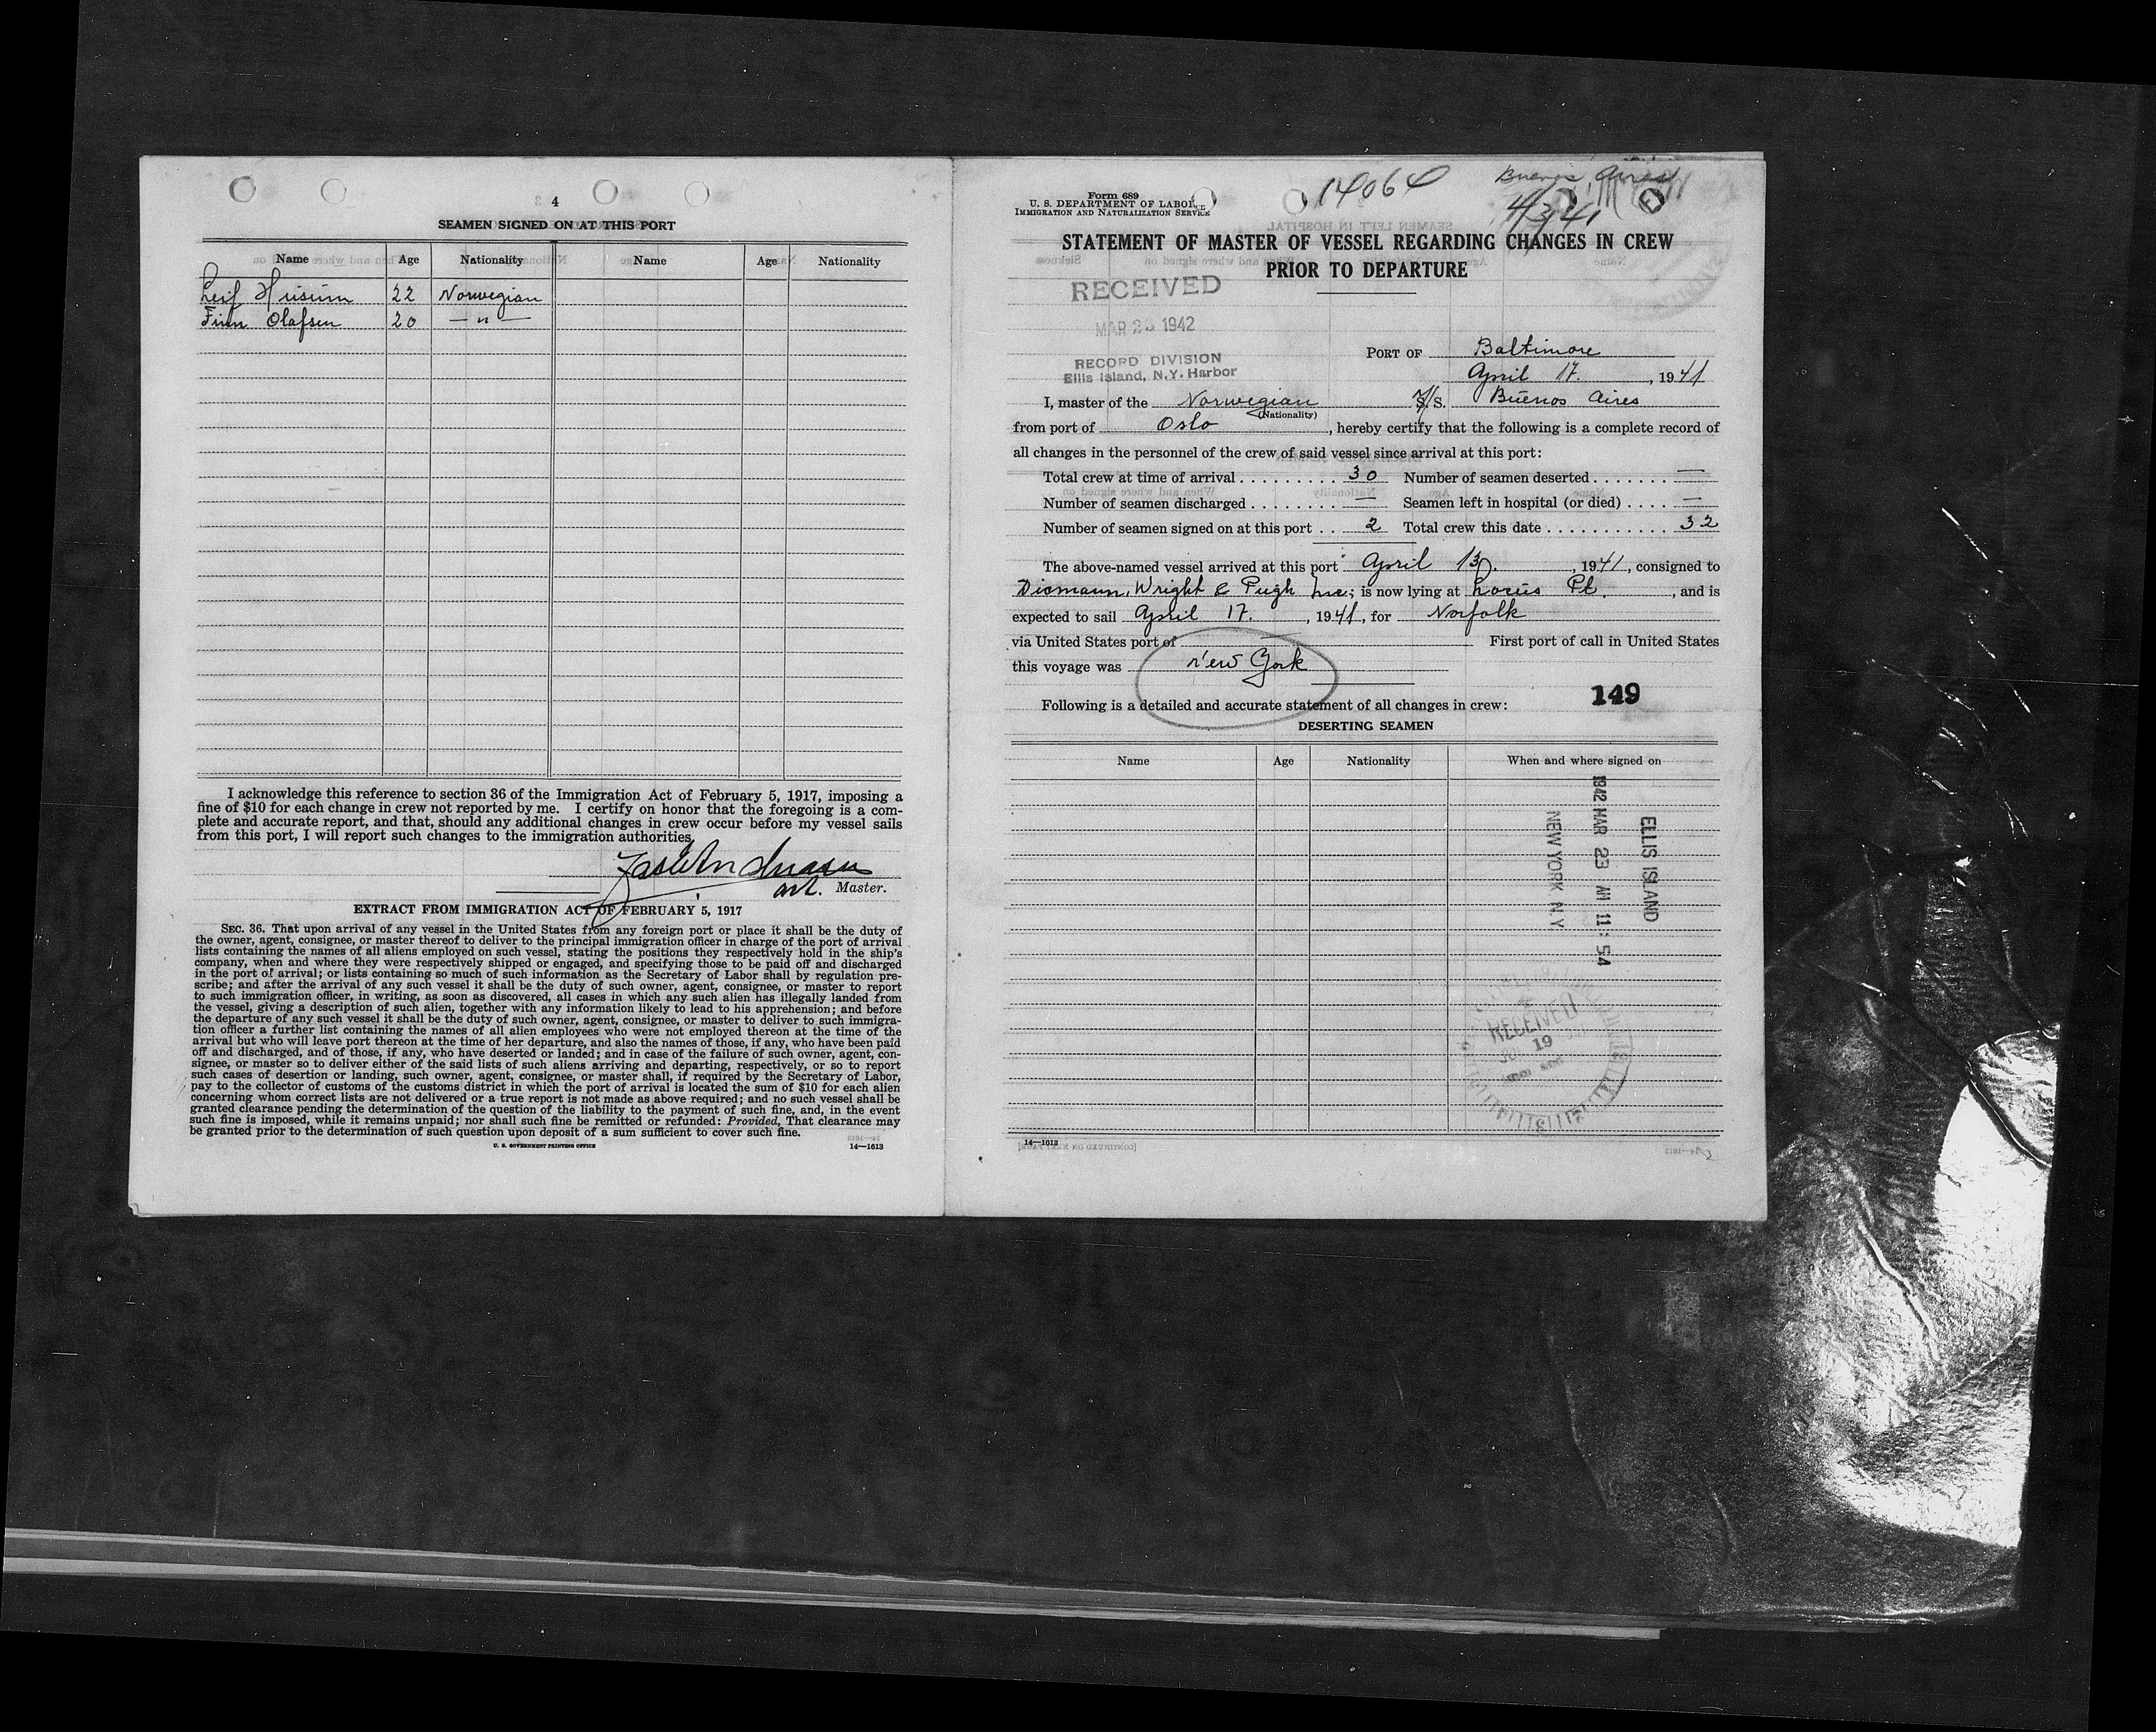 4
SEAMEN SIGNED ON AT THIS PORT
Name Age Nationality Name Age Nationality
Leif Husum 22 Norwegian
Finn Olafsen 20 — " —
I acknowledge this reference to section 36 of the Immigration Act of February 5, 1917, imposing a
fine of $10 for each change in crew not reported by me. I certify on honor that the foregoing is a com-
plete and accurate report, and that, should any additional changes in crew occur before my vessel sails
from this port, I will report such changes to the immigration authorities.
Master.
EXTRACT FROM IMMIGRATION ACT OF FEBRUARY 5, 1917
SEC. 36. That upon arrival of any vessel in the United States from any foreign port or place it shall be the duty of
the owner, agent, consignee, or master thereof to deliver to the principal immigration officer in charge of the port of arrival
lists containing the names of all aliens employed on such vessel, stating the positions they respectively hold in the ship's
company, when and where they were respectively shipped or engaged, and specifying those to be paid off and discharged
in the port of arrival; or lists containing so much of such information as the Secretary of Labor shall by regulation pre-
scribe; and after the arrival of any such vessel it shall be the duty of such owner, agent, consignee, or master to report
to such immigration officer, in writing, as soon as discovered, all cases in which any such alien has illegally landed from
the vessel, giving a description of such alien, together with any information likely to lead to his apprehension; and before
the departure of any such vessel it shall be the duty of such owner, agent, consignee, or master to deliver to such immigra-
tion officer a further list containing the names of all alien employees who were not employed thereon at the time of the
arrival but who will leave port thereon at the time of her departure, and also the names of those, if any, who have been paid
off and discharged, and of those, if any, who have deserted or landed; and in case of the failure of such owner, agent, con-
signee, or master so to deliver either of the said lists of such aliens arriving and departing, respectively, or so to report
such cases of desertion or landing, such owner, agent, consignee, or master shall, if required by the Secretary of Labor,
pay to the collector of customs of the customs district in which the port of arrival is located the sum of $10 for each alien
concerning whom correct lists are not delivered or a true report is not made as above required; and no such vessel shall be
granted clearance pending the determination of the question of the liability to the payment of such fine, and, in the event
such fine is imposed, while it remains unpaid; nor shall such fine be remitted or refunded: Provided, That clearance may
be granted prior to the determination of such question upon deposit of a sum sufficient to cover such fine.
U. S. GOVERNMENT PRINTING OFFICE 14—1613
Form 689
U. S. DEPARTMENT OF LABOR
IMMIGRATION AND NATURALIZATION SERVICE
14064
Buenos Aires
4/3/41
STATEMENT OF MASTER OF VESSEL REGARDING CHANGES IN CREW
PRIOR TO DEPARTURE
RECEIVED
MAR 23 1942
RECORD DIVISION
Ellis Island, N.Y. Harbor
PORT OF Baltimore
April 17. , 1941
I, master of the Norwegian M/S. Buenos Aires
(Nationality)
from port of Oslo , hereby certify that the following is a complete record of
all changes in the personnel of the crew of said vessel since arrival at this port:
Total crew at time of arrival 30 Number of seamen deserted —
Number of seamen discharged — Seamen left in hospital (or died) —
Number of seamen signed on at this port 2 Total crew this date 32
The above-named vessel arrived at this port April 13. , 1941, consigned to
Dicmann, Wright & Pugh Inc; is now lying at Locus Pt. , and is
expected to sail April 17. , 1941, for Norfolk
via United States port of — First port of call in United States
this voyage was New York
149
Following is a detailed and accurate statement of all changes in crew:
DESERTING SEAMEN
Name Age Nationality When and where signed on
ELLIS ISLAND
1942 MAR 23 AM 11:54
NEW YORK N.Y
RECEIVED
19
14—1613